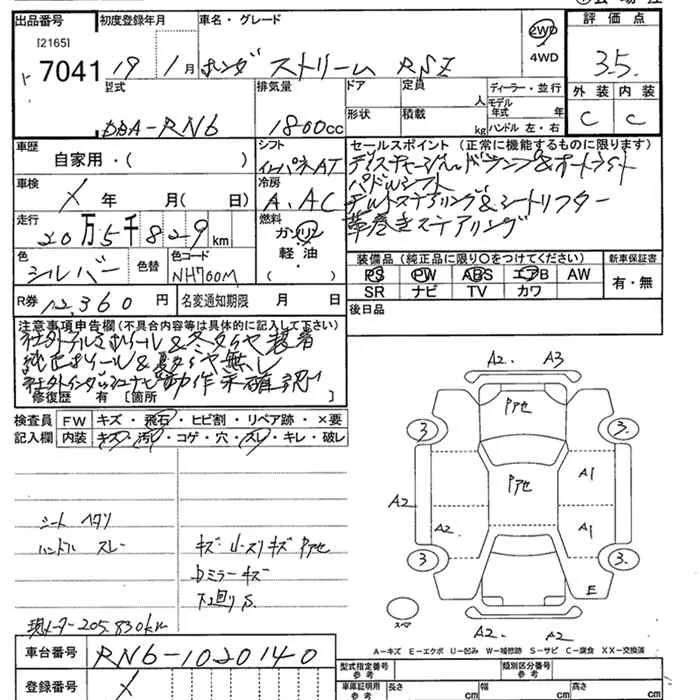 出品番号 初度登録年月 車名・グレード 評価点
[2165] 2WD
7041 19年 1月 ホンダ ストリーム RSZ 4WD 3.5
型式 排気量 ドア 定員 人 ディーラー・並行 外装 内装
DBA-RN6 1800cc 形状 積載 kg モデル年式 年 ハンドル 左・右 C C
車歴 シフト セールスポイント (正常に機能するものに限ります)
自家用・( ) インパネAT ディスチャージヘッドランプ&オートライト
車検 冷房 パドルシフト
X 年 月( 日) A.AC チルトステアリング&シートリフター
走行 燃料 革巻きステアリング
20万5千829km ガソリン
軽油・
( )
色 色替 色コード 装備品 (純正品に限り〇をつけてください) 新車保証書
シルバー NH700M PS PW ABS エアB AW 有・無
SR ナビ TV カワ
R券 12,360円 名変通知期限 月 日 後日品
注意事項申告欄(不具合内容等は具体的に記入して下さい)
社外アルミホイール&冬タイヤ装着
純正ホイール&夏タイヤ無し
社外インダッシュナビ動作未確認
修復歴 有 [箇所 ]
検査員 FW キズ・飛石・ヒビ割・リペア跡・×要
記入欄 内装 キズ・汚れ・コゲ・穴・スレ・キレ・破レ
A2. A3
Pアセ
3 3.
Pアセ A1
A2
A2 A1
3 3.
E
シート ヘタリ
ハンドル スレー キズ・U・スリキズ Pアセ
Dミラーキズ
下廻りS.
スペア
A2 A2
現メーター205,830km
A-キズ E-エクボ U-凹み W-補修跡 S-サビ C-腐食 XX-交換済
車台番号 RN6-1020140
型式指定番号 参考 類別区分番号 参考
登録番号 X
車庫証明用 参考 長さ cm 幅 cm 高さ cm